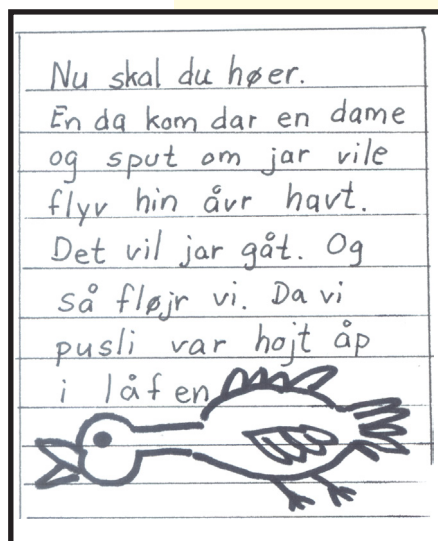 Nu skal du høer.
En da kom dar en dame
og sput om jar vile
flyv hin åvr havt.
Det vil jar gåt. Og
så fløjr vi. Da vi
pusli var hojt åp
i låfen